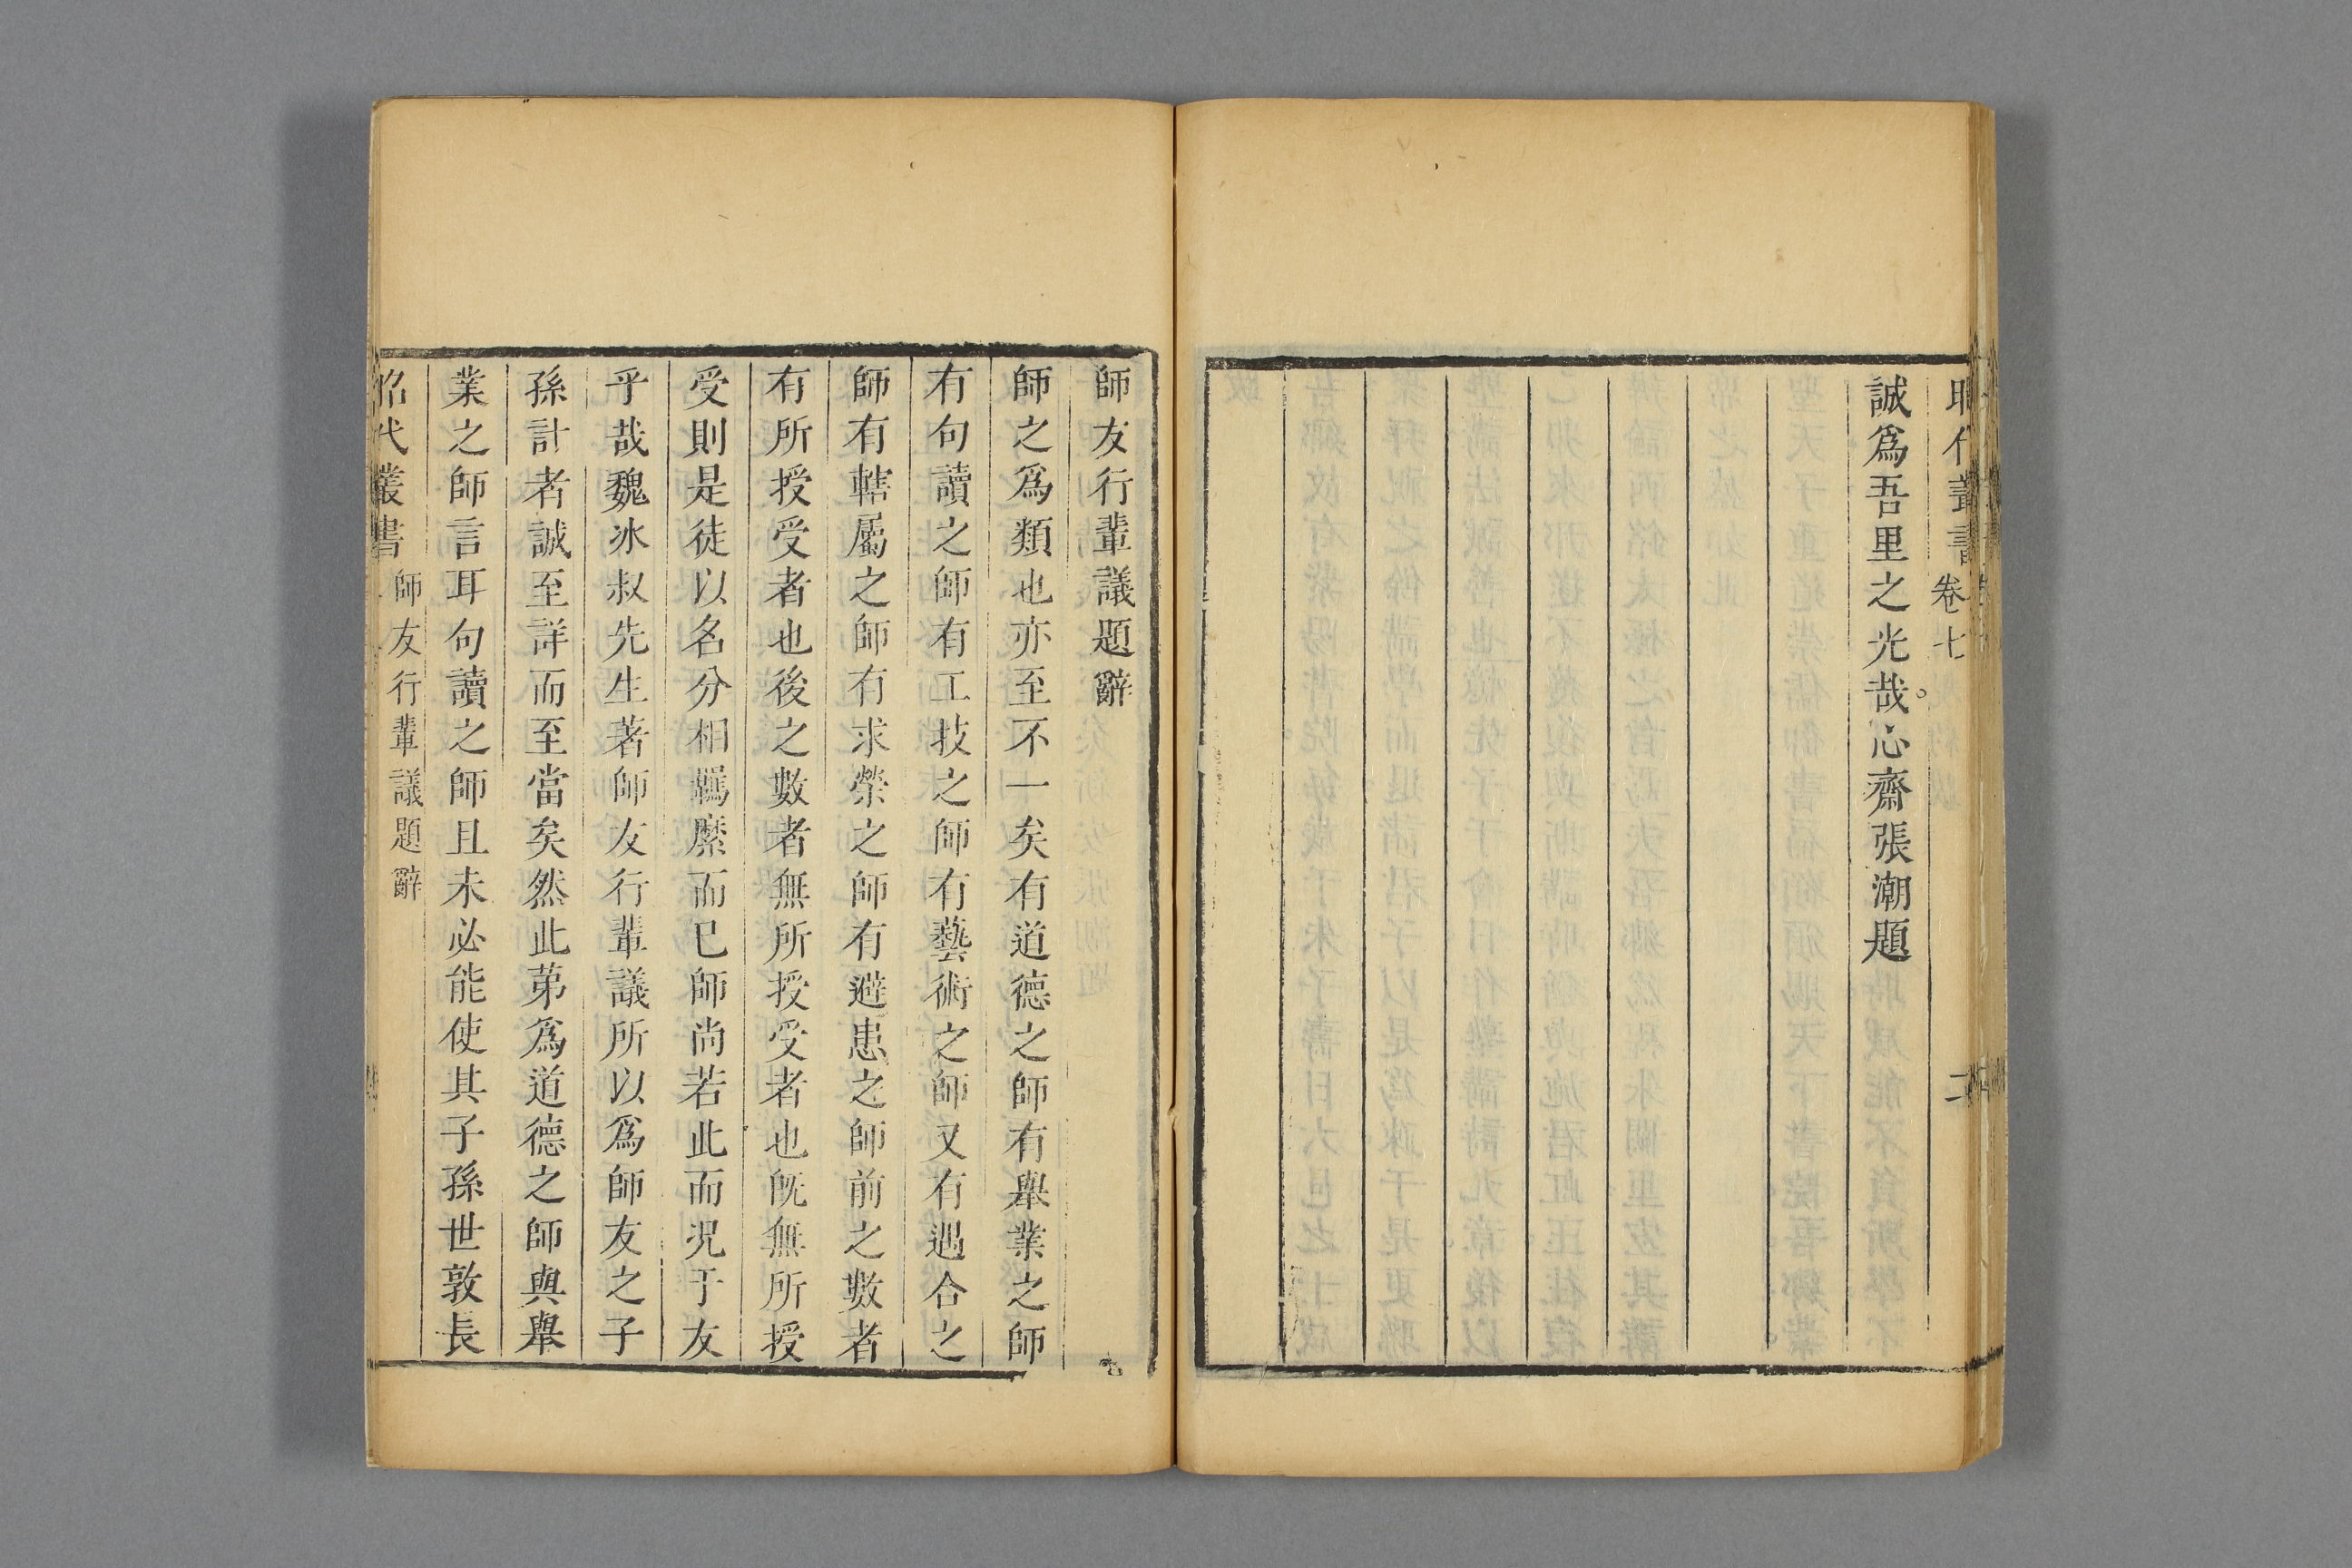 昭代叢書 卷七 二
誠爲吾里之光哉心齋張潮題
師友行輩議題辭
師之爲類也亦至不一矣有道德之師有舉業之師
有句讀之師有工技之師有藝術之師又有遇合之
師有轄屬之師有求榮之師有避患之師前之數者
有所授受者也後之數者無所授受者也旣無所授
受則是徒以名分相羈縻而已師尚若此而况于友
乎哉魏冰叔先生著師友行輩議所以爲師友之子
孫計者誠至詳而至當矣然此苐爲道德之師與舉
業之師言耳句讀之師且未必能使其子孫世敦長
昭代叢書 師友行輩議題辭